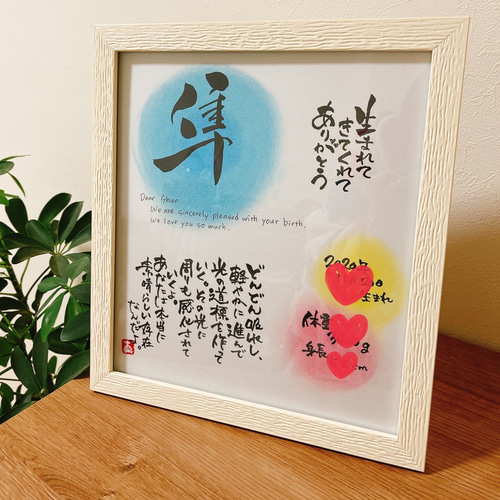 隼
生まれて
きてくれて
ありがとう
Dear Shun
We are sincerely pleased with your birth.
We love you so much.
どんどん吸収し、
軽やかに進んで
光の道標を作って
いく。その光に
周りも感化されて
いくよ。
あなたは本当に
素晴らしい存在
なんだよ。
2020年
生まれ
体重
g
身長
cm